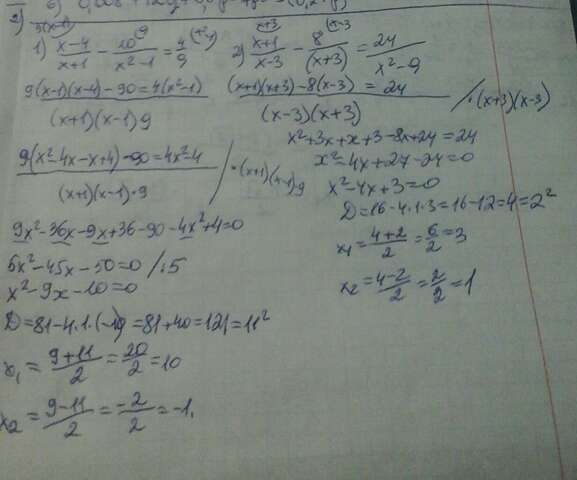 2)
1) 9(x-1) (x-4)/(x+1) - 10 9)/(x²-1) = 4/9 (x²-1)
9(x-1)(x-4)-90=4(x²-1)
(x+1)(x-1)9
9(x²-4x-x+4)-90=4x²-4 / ·(x+1)(x-1)9
(x+1)(x-1)·9
9x²-36x-9x+36-90-4x²+4=0
5x²-45x-50=0 /:5
x²-9x-10=0
D=81-4·1·(-10)=81+40=121=11²
x₁=(9+11)/2=20/2=10
x₂=(9-11)/2=-2/2=-1.
2) x+3) (x+1)/(x-3) - 8 (x-3)/(x+3) = 24/(x²-9)
(x+1)(x+3)-8(x-3) = 24 / ·(x+3)(x-3)
(x-3)(x+3)
x²+3x+x+3-8x+24=24
x²-4x+27-24=0
x²-4x+3=0
D=16-4·1·3=16-12=4=2²
x₁=(4+2)/2=6/2=3
x₂=(4-2)/2=2/2=1